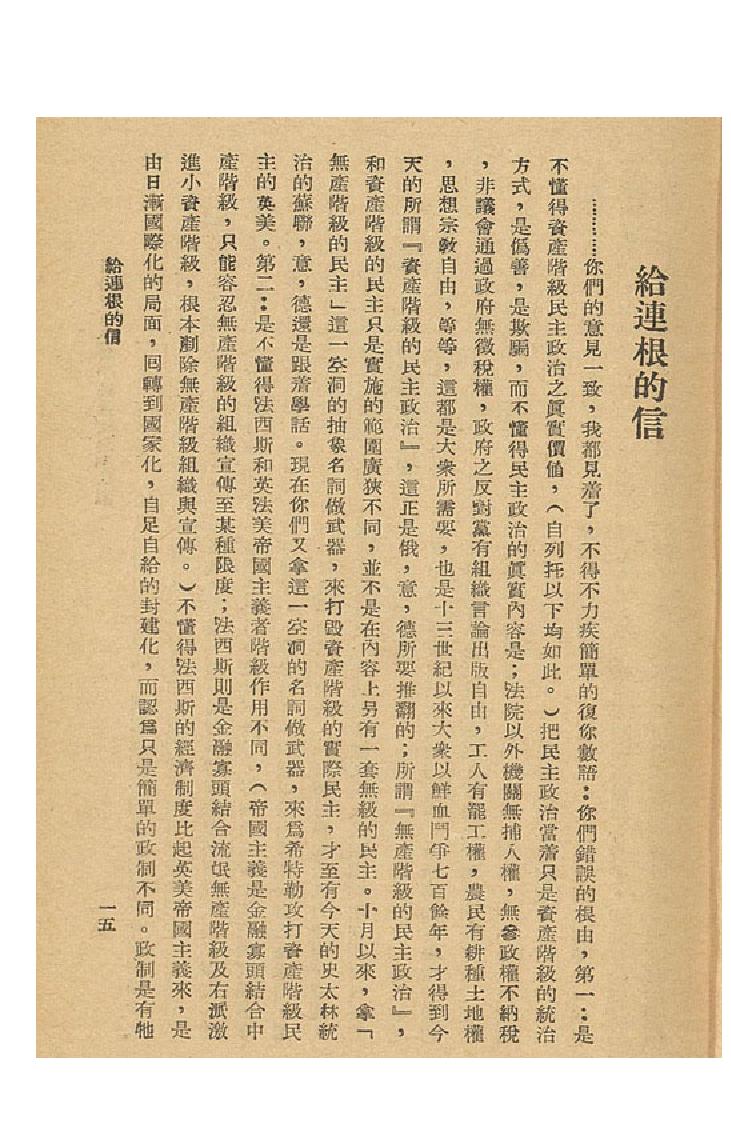 給連根的信
…………你們的意見一致，我都見着了，不得不力疾簡單的復你數語：你們錯誤的根由，第一：是
不懂得資產階級民主政治之眞實價值，（自列托以下均如此。）把民主政治當着只是資產階級的統治
方式，是僞善，是欺騙，而不懂得民主政治的眞實內容是；法院以外機關無捕人權，無參政權不納稅
，非議會通過政府無徵稅權，政府之反對黨有組織言論出版自由，工人有罷工權，農民有耕種土地權
，思想宗敎自由，等等，這都是大衆所需要，也是十三世紀以來大衆以鮮血鬥爭七百餘年，才得到今
天的所謂『資產階級的民主政治』，這正是俄，意，德所要推翻的；所謂『無產階級的民主政治』，
和資產階級的民主只是實施的範圍廣狹不同，並不是在內容上另有一套無級的民主。十月以來，拿「
無產階級的民主」這一空洞的抽象名詞做武器，來打毀資產階級的實際民主，才至有今天的史太林統
治的蘇聯，意，德還是跟着學話。現在你們又拿這一空洞的名詞做武器，來爲希特勒攻打資產階級民
主的英美。第二：是不懂得法西斯和英法美帝國主義者階級作用不同，（帝國主義是金融寡頭結合中
產階級，只能容忍無產階級的組織宣傳至某種限度；法西斯則是金融寡頭結合流氓無產階級及右派激
進小資產階級，根本剷除無產階級組織與宣傳。）不懂得法西斯的經濟制度比起英美帝國主義來，是
由日漸國際化的局面，回轉到國家化，自足自給的封建化，而認爲只是簡單的政制不同。政制是有牠
給連根的信
一五